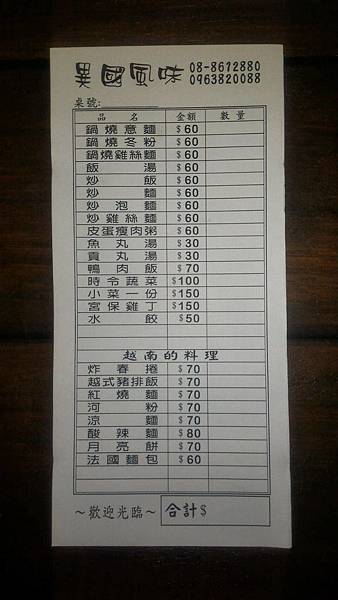 異國風味 08-8612880
0963820088
桌號:
品名 金額 數量
鍋燒意麵 $60
鍋燒冬粉 $60
鍋燒雞絲麵 $60
飯湯 $60
炒飯 $60
炒麵 $60
炒泡麵 $60
炒雞絲麵 $60
皮蛋瘦肉粥 $60
魚丸湯 $30
貢丸湯 $30
鴨肉飯 $70
時令蔬菜 $100
小菜一份 $150
宮保雞丁 $150
水餃 $50
越南的料理
炸春捲 $70
越式豬排飯 $70
紅燒麵 $70
河粉 $70
涼麵 $70
酸辣麵 $80
月亮餅 $70
法國麵包 $60
～歡迎光臨～ 合計$